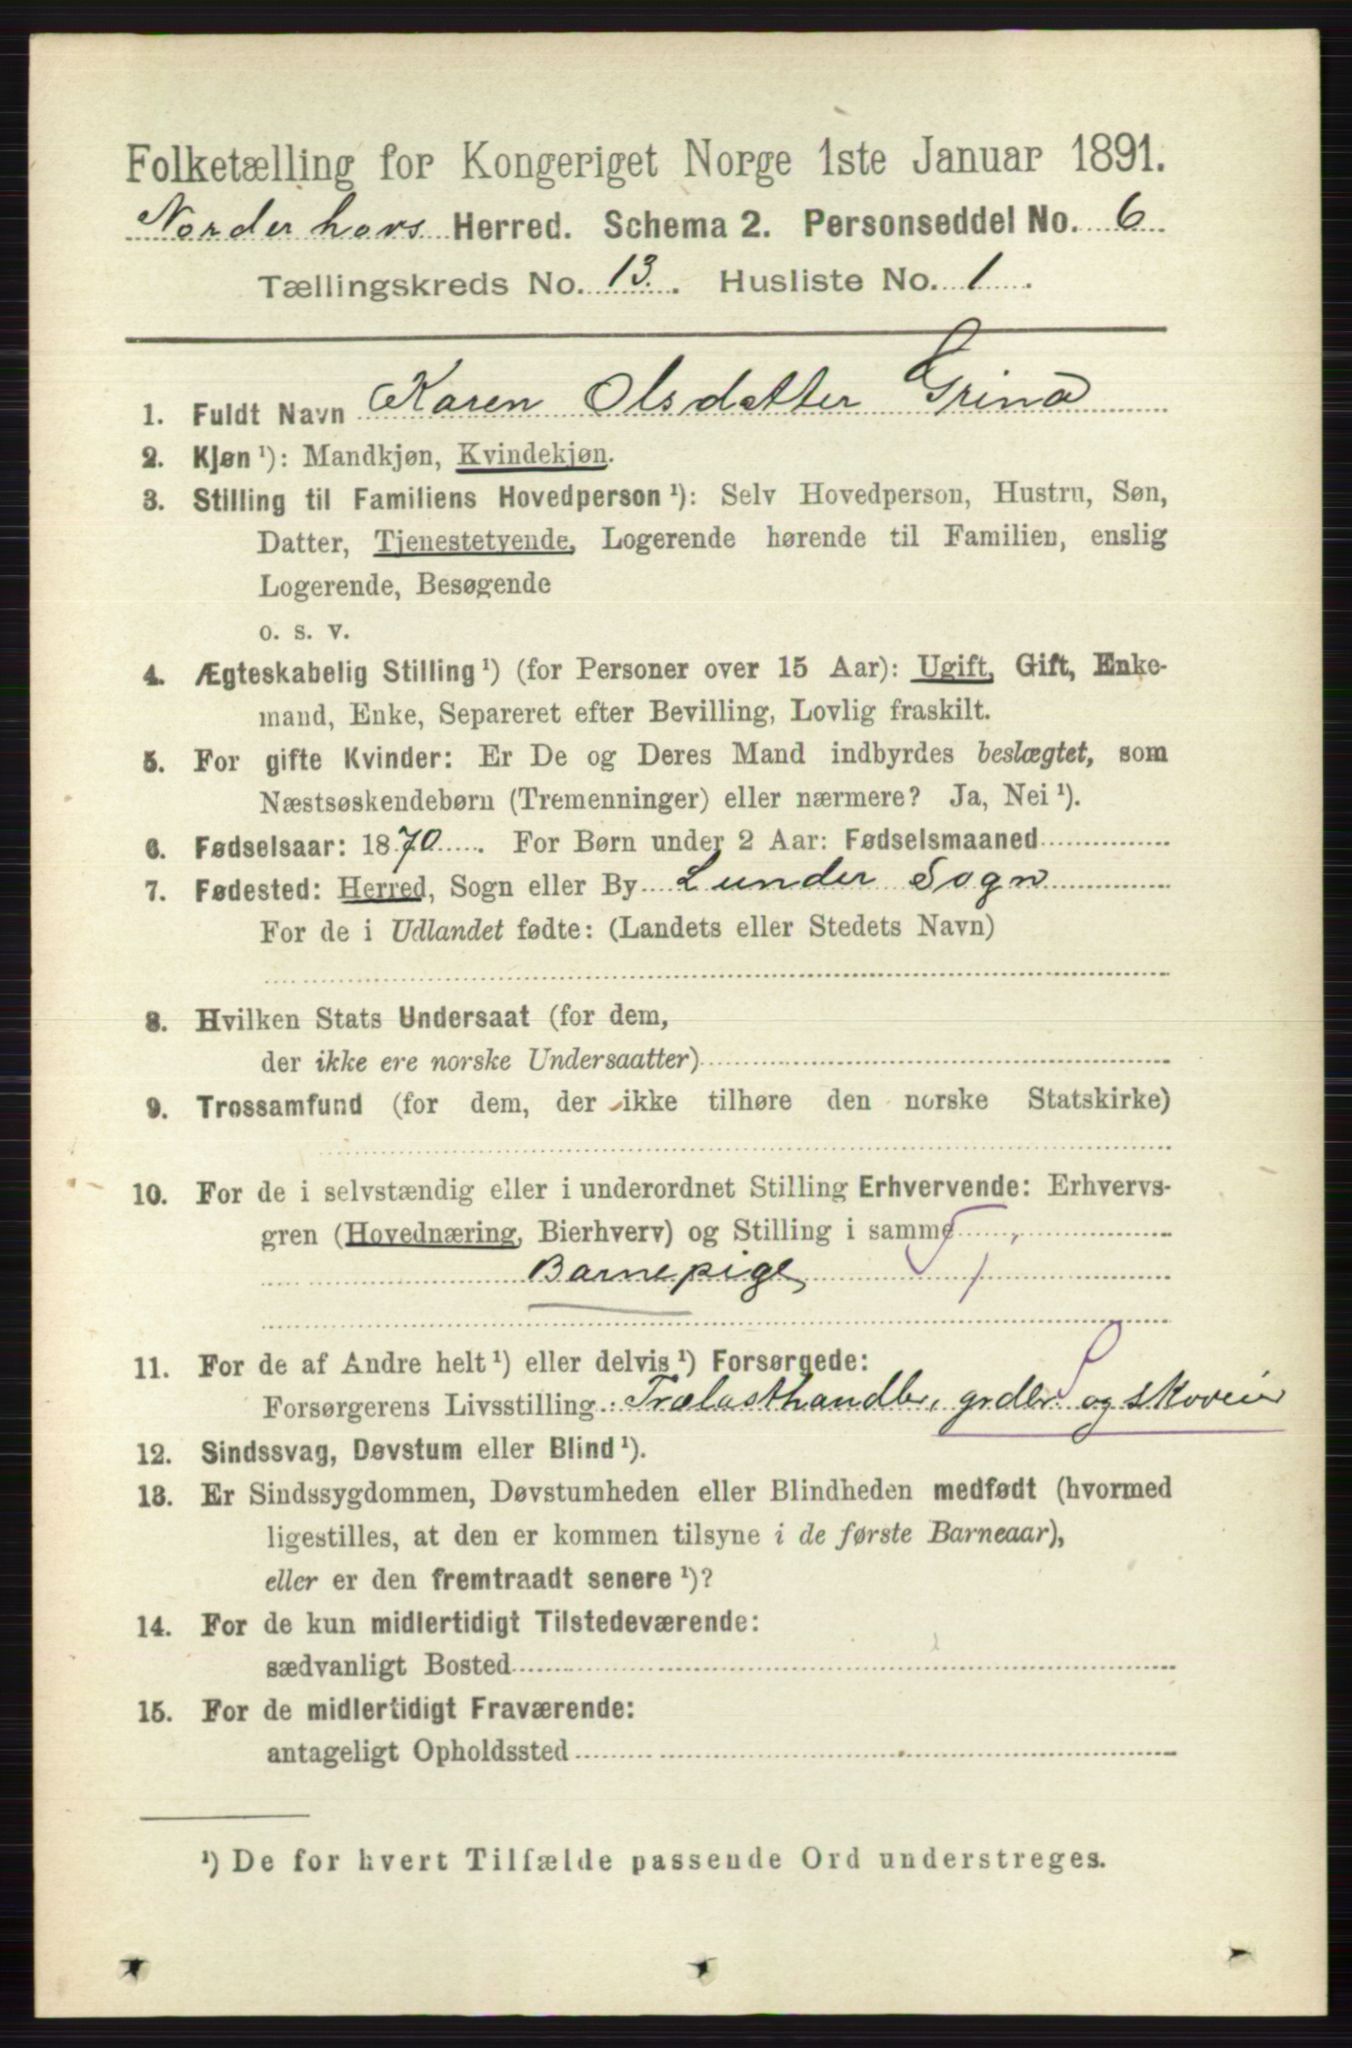 Folketælling for Kongeriget Norge 1ste Januar 1891.
Norderhovs Herred. Schema 2. Personseddel No. 6
Tællingskreds No. 13. Husliste No. 1.
1. Fuldt Navn Karen Olsdatter Grina
2. Kjøn ¹): Mandkjøn, Kvindekjøn.
3. Stilling til Familiens Hovedperson ¹): Selv Hovedperson, Hustru, Søn,
Datter, Tjenestetyende, Logerende hørende til Familien, enslig
Logerende, Besøgende
o. s. v.
4. Ægteskabelig Stilling ¹) (for Personer over 15 Aar): Ugift, Gift, Enke-
mand, Enke, Separeret efter Bevilling, Lovlig fraskilt.
5. For gifte Kvinder: Er De og Deres Mand indbyrdes beslægtet, som
Næstsøskendebørn (Tremenninger) eller nærmere? Ja, Nei ¹).
6. Fødselsaar: 1870. For Børn under 2 Aar: Fødselsmaaned
7. Fødested: Herred, Sogn eller By Lunder Sogn
For de i Udlandet fødte: (Landets eller Stedets Navn)
8. Hvilken Stats Undersaat (for dem,
der ikke ere norske Undersaatter)
9. Trossamfund (for dem, der ikke tilhøre den norske Statskirke)
10. For de i selvstændig eller i underordnet Stilling Erhvervende: Erhvervs-
gren (Hovednæring, Bierhverv) og Stilling i samme
Barnepige
11. For de af Andre helt ¹) eller delvis ¹) Forsørgede:
Forsørgerens Livsstilling: Trælasthandler, grdbr. og skoveier
12. Sindssvag, Døvstum eller Blind ¹).
13. Er Sindssygdommen, Døvstumheden eller Blindheden medfødt (hvormed
ligestilles, at den er kommen tilsyne i de første Barneaar),
eller er den fremtraadt senere ¹)?
14. For de kun midlertidigt Tilstedeværende:
sædvanligt Bosted
15. For de midlertidigt Fraværende:
antageligt Opholdssted
¹) De for hvert Tilfælde passende Ord understreges.